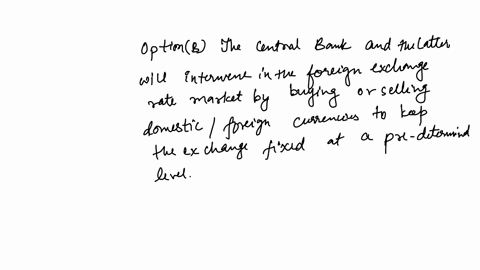 Option(B) The Central Bank and the latter
will intervent in the foreign exchange
rate market by buying or selling
domestic / foreign currencies to keep
the exchange fixed at a pre-determind
level.